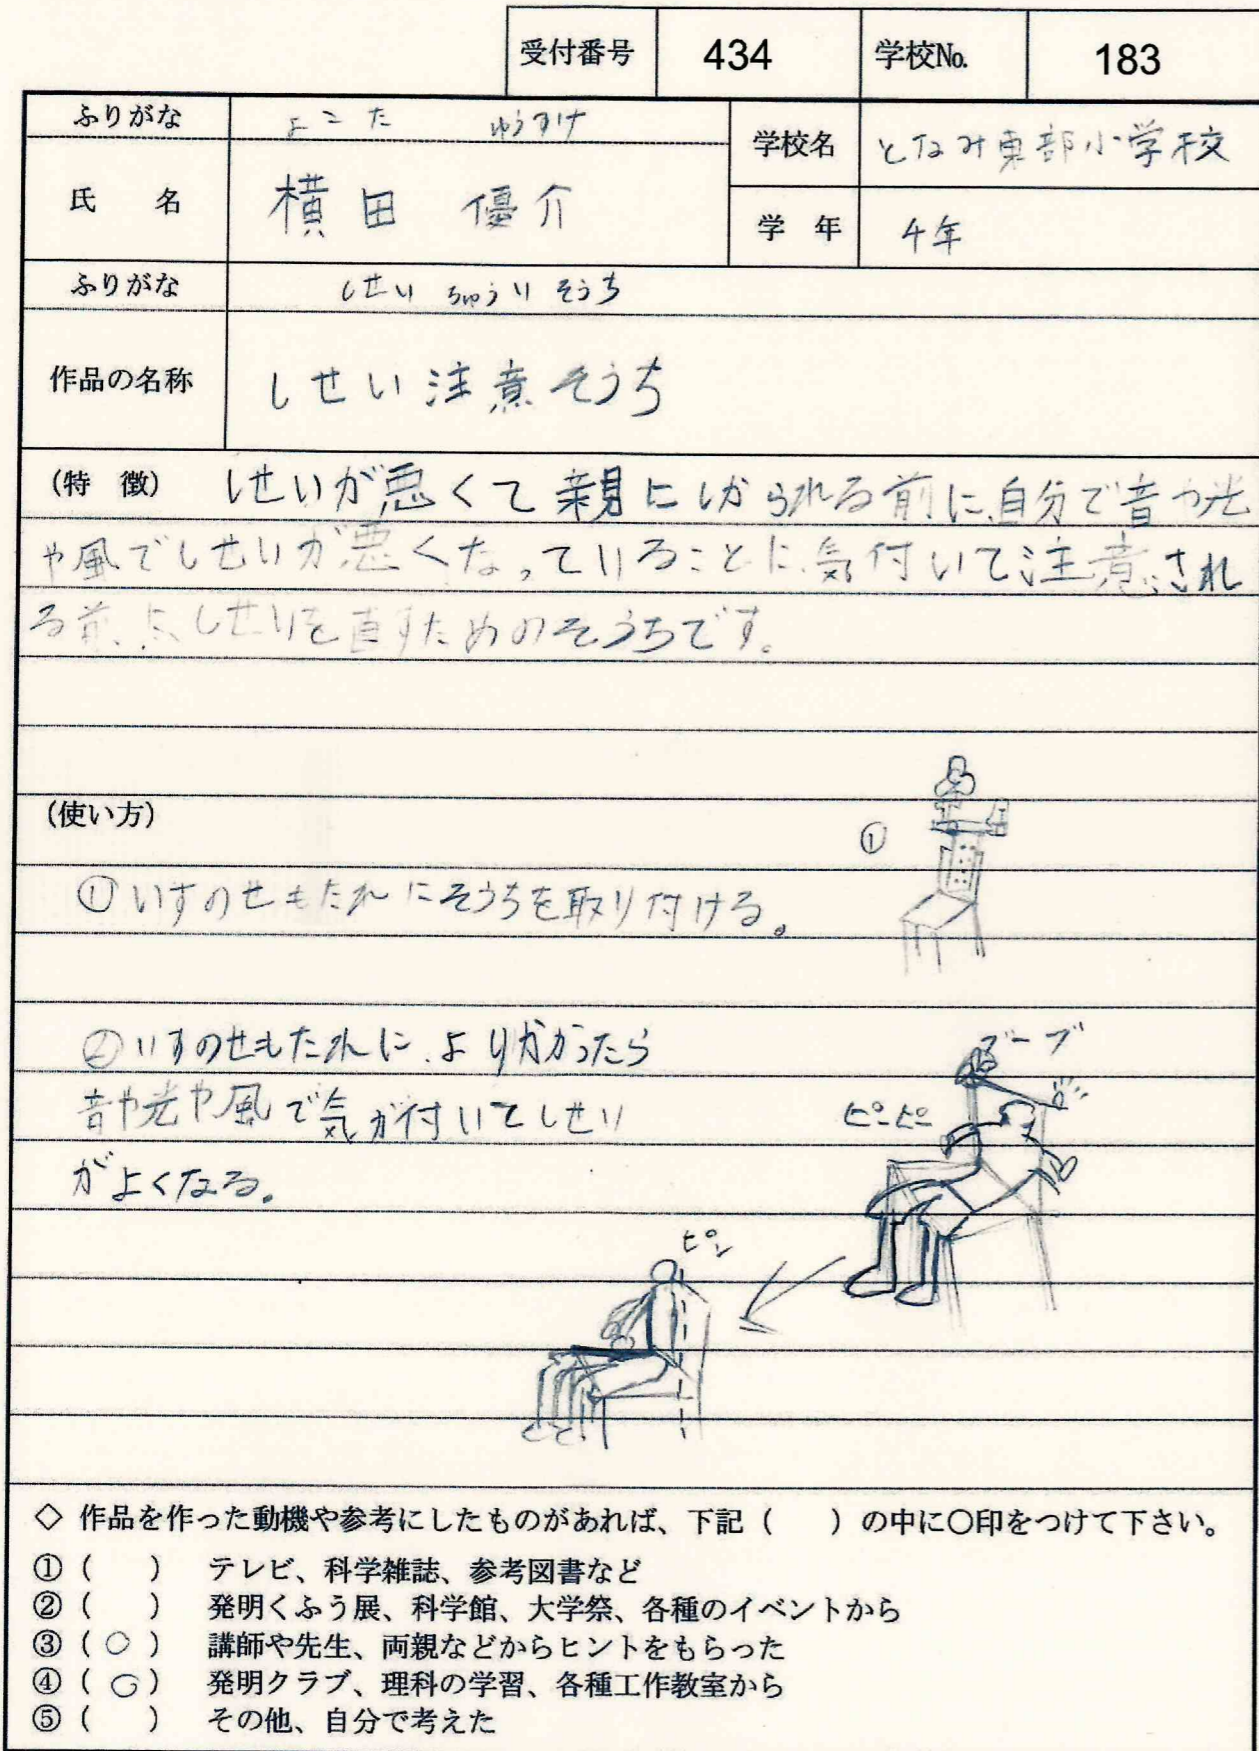 受付番号 434 学校No. 183
ふりがな よこた ゆうすけ
学校名 となみ東部小学校
氏 名 横田 優介
学 年 4年
ふりがな しせい ちゅうい そうち
作品の名称 しせい注意そうち
(特 徴) しせいが悪くて親にしかられる前に、自分で音や光
や風でしせいが悪くなっていることに気付いて注意され
る前に、しせいを直すためのそうちです。
(使い方)
①
①いすのせもたれにそうちを取り付ける。
②いすのせもたれに、よりかかったら
ブーブ
音や光や風で気が付いてしせい
ピーピー
がよくなる。
ピン
◇ 作品を作った動機や参考にしたものがあれば、下記( )の中に○印をつけて下さい。
①( ) テレビ、科学雑誌、参考図書など
②( ) 発明くふう展、科学館、大学祭、各種のイベントから
③(○) 講師や先生、両親などからヒントをもらった
④(○) 発明クラブ、理科の学習、各種工作教室から
⑤( ) その他、自分で考えた